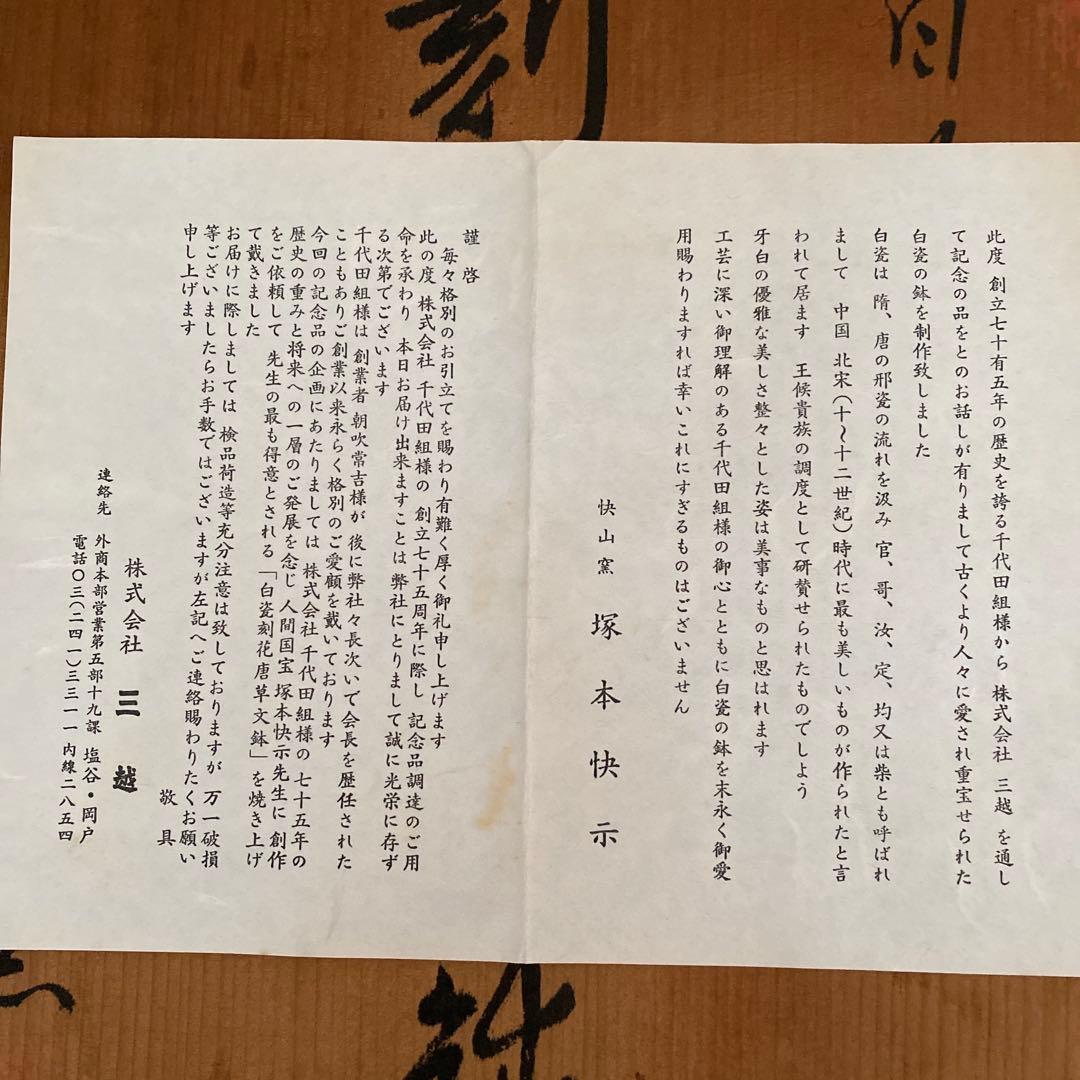 此度 創立七十有五年の歴史を誇る千代田組様から 株式会社 三越 を通し
て記念の品をとのお話しが有りまして古くより人々に愛され重宝せられた
白瓷の鉢を制作致しました
白瓷は 隋、唐の邢瓷の流れを汲み 官、哥、汝、定、均又は柴とも呼ばれ
まして 中国 北宋(十〜十二世紀)時代に最も美しいものが作られたと言
われて居ます 王候貴族の調度として研賛せられたものでしよう
牙白の優雅な美しさ整々とした姿は美事なものと思はれます
工芸に深い御理解のある千代田組様の御心とともに白瓷の鉢を末永く御愛
用賜わりますれば幸いこれにすぎるものはございません
快山窯 塚本快示
謹啓
毎々格別のお引立てを賜わり有難く厚く御礼申し上げます
此の度 株式会社 千代田組様の 創立七十五周年に際し 記念品調達のご用
命を承わり 本日お届け出来ますことは 弊社にとりまして誠に光栄に存ず
る次第でございます
千代田組様は 創業者 朝吹常吉様が 後に弊社々長次いで会長を歴任された
こともありご創業以来永らく格別のご愛顧を戴いております
今回の記念品の企画にあたりましては 株式会社千代田組様の 七十五年の
歴史の重みと将来への一層のご発展を念じ 人間国宝 塚本快示先生に 創作
をご依頼して 先生の最も得意とされる「白瓷刻花唐草文鉢」を焼き上げ
て戴きました
お届けに際しましては 検品荷造等充分注意は致しておりますが 万一破損
等ございましたらお手数ではございますが左記へご連絡賜わりたくお願い
申し上げます
敬具
株式会社 三越
連絡先 外商本部営業第五部十九課 塩谷・岡戸
電話〇三(二四一)三三一一 内線二八五四